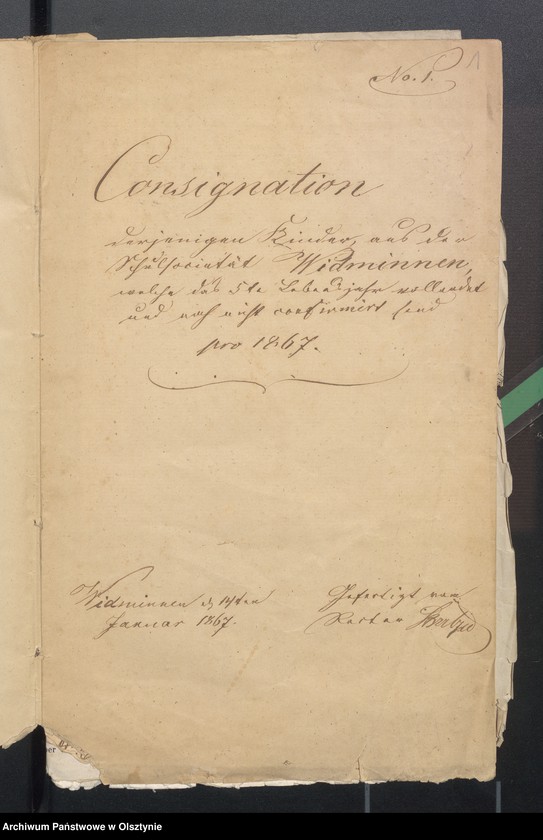 No. 1.
1
Consignation
derjenigen Kinder, aus der
Schulsocietät Widminnen,
welche das 5te Lebensjahr vollendet
und noch nicht confirmirt sind
pro 1867.
Widminnen d 14ten
Januar 1867.
Gefertigt vom
Rector
Archiwum Państwowe w Olsztynie